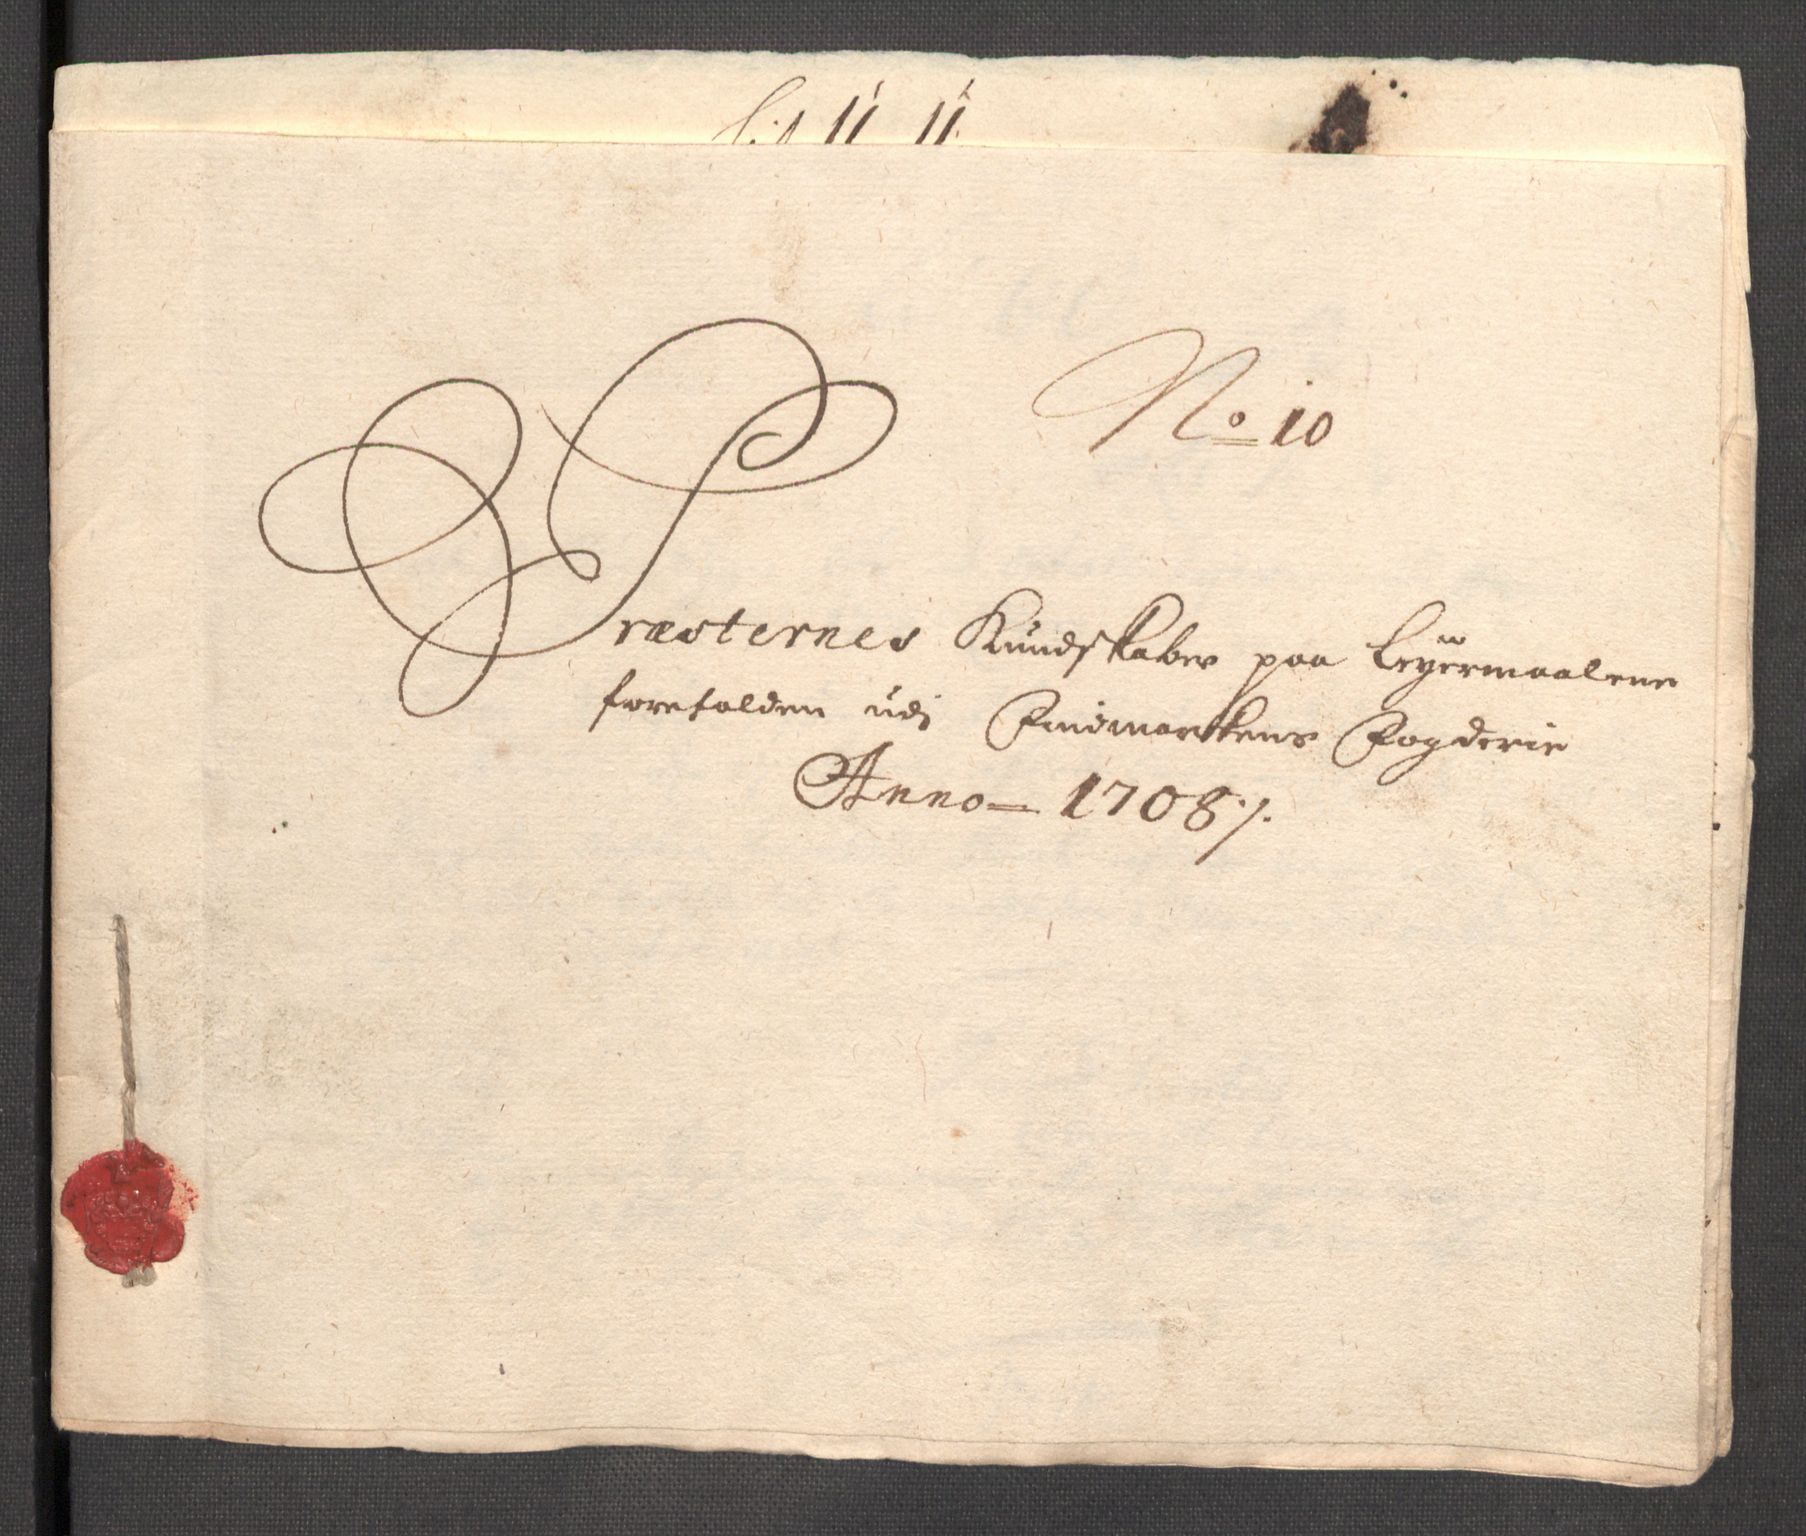 No 10
Præsternes Kundskaber paa Leyermaalene
forefalden udi Findmarkens Fogderie
Anno 1708 /.